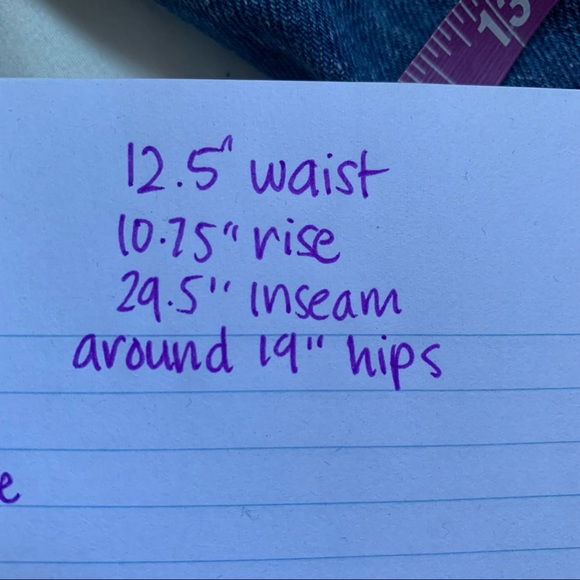 13
12.5" waist
10.75" rise
29.5" inseam
around 19" hips
e